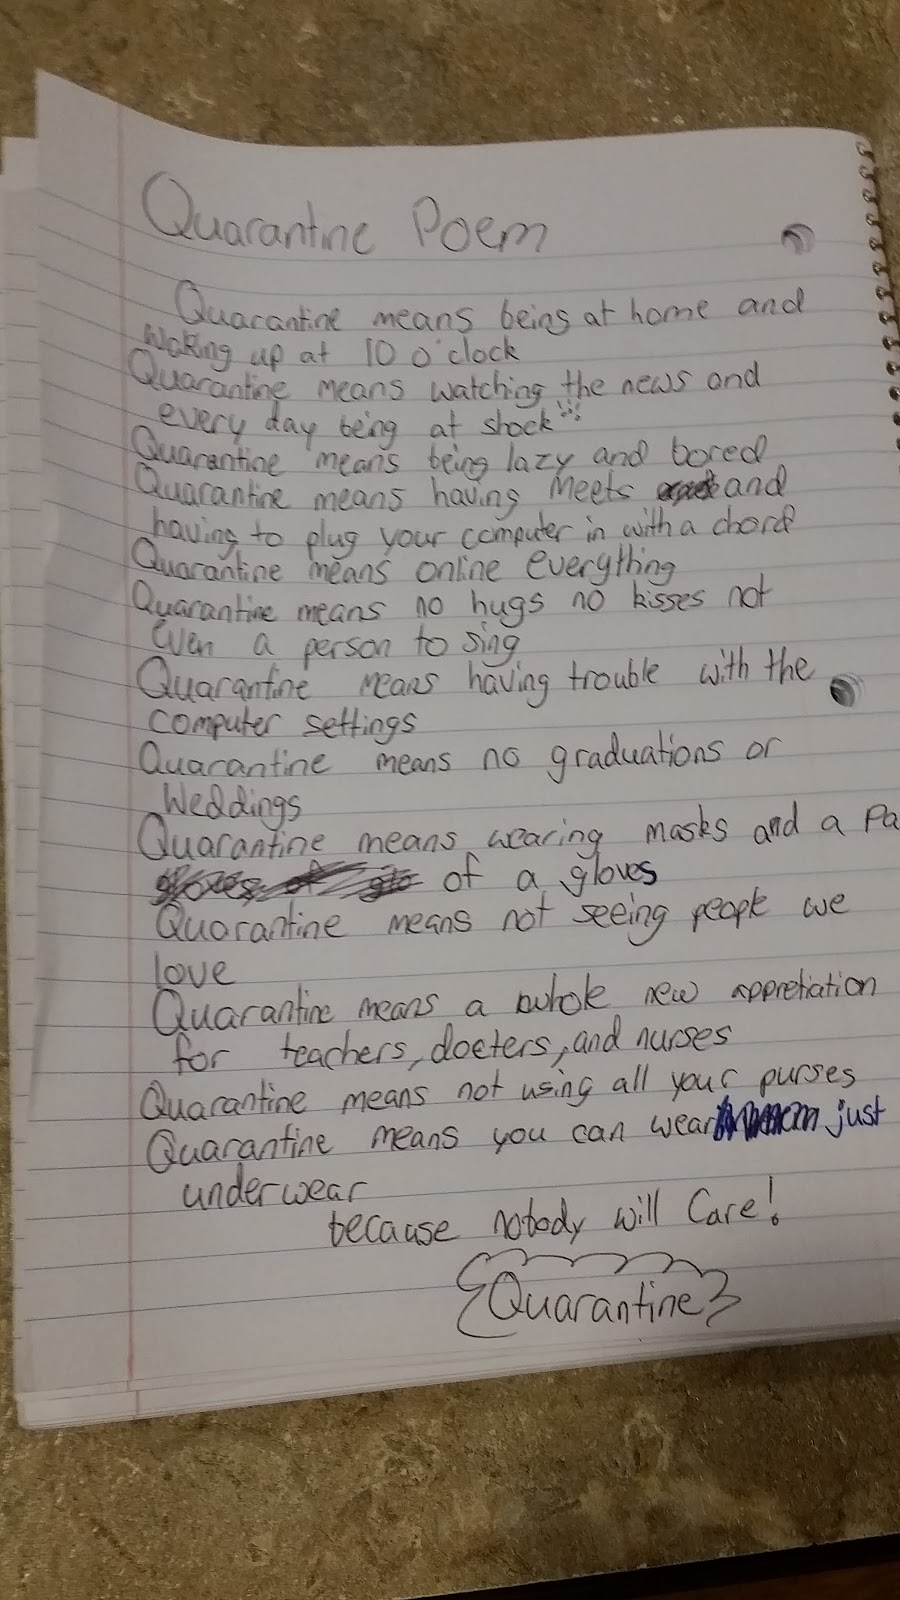 Quarantine Poem
Quarantine means being at home and
Waking up at 10 o'clock
Quarantine means watching the news and
every day being at shock
Quarantine means being lazy and bored
Quarantine means having Meets and
having to plug your computer in with a chord
Quarantine means online everything
Quarantine means no hugs no kisses not
Even a person to sing
Quarantine means having trouble with the
computer settings
Quarantine means no graduations or
Weddings
Quarantine means wearing masks and a Pa
of a gloves
Quarantine means not seeing people we
love
Quarantine means a whole new appretiation
for teachers, docters, and nurses
Quarantine means not using all your purses
Quarantine means you can wear just
underwear
because nobody will Care!
Quarantine